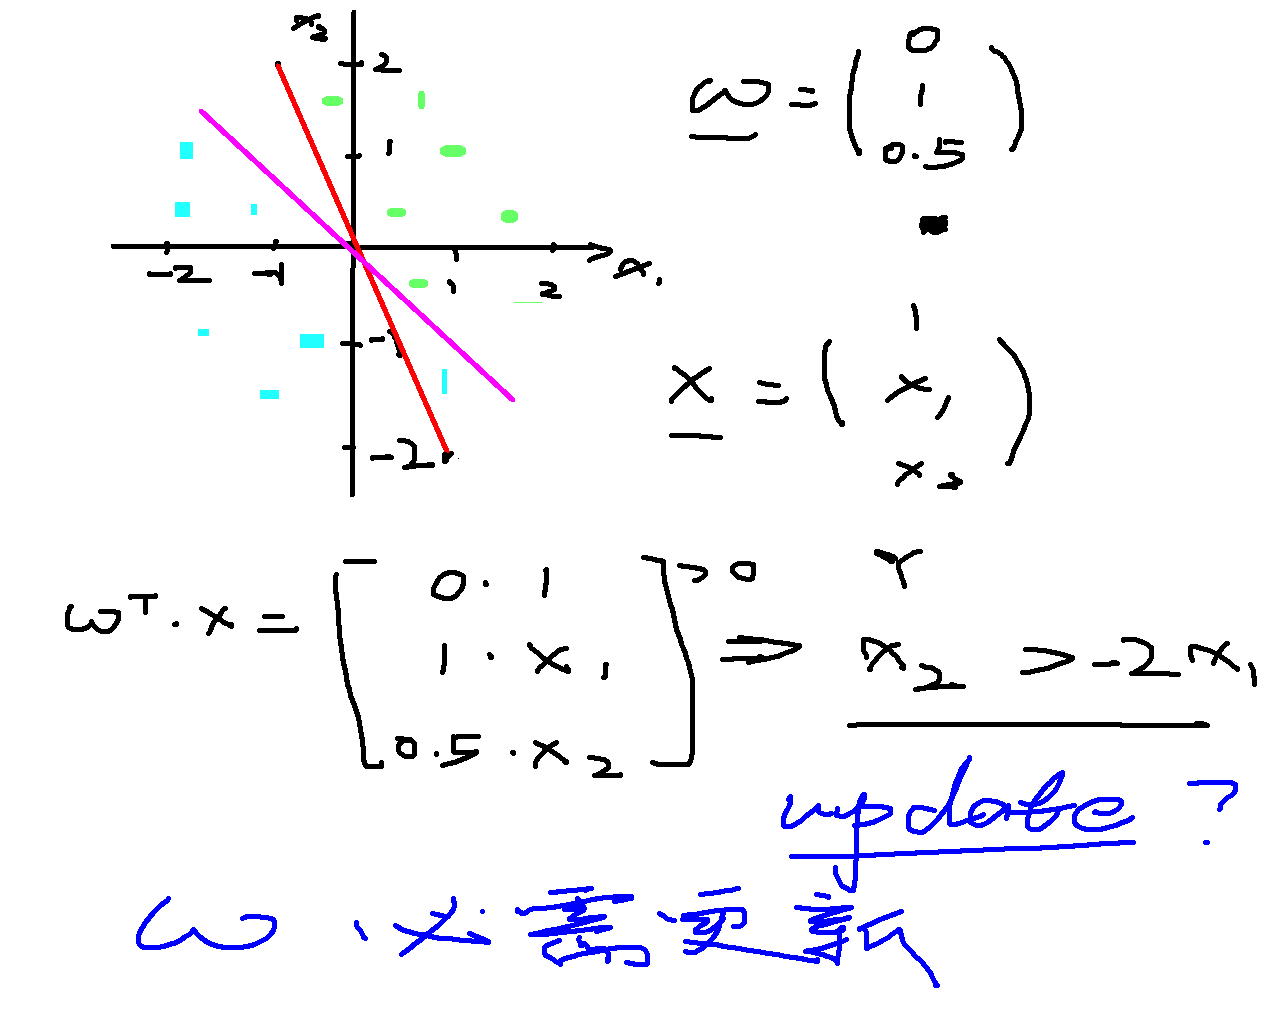 x₂
2
1
-2 -1 1 2 x₁
-1
-2
ω = (0 1 0.5)
x = (1 x₁ x₂)
ωᵀ·x = [0·1 1·x₁ 0.5·x₂] > 0 ⇒ x₂ > -2x₁
update ?
ω 必需更新